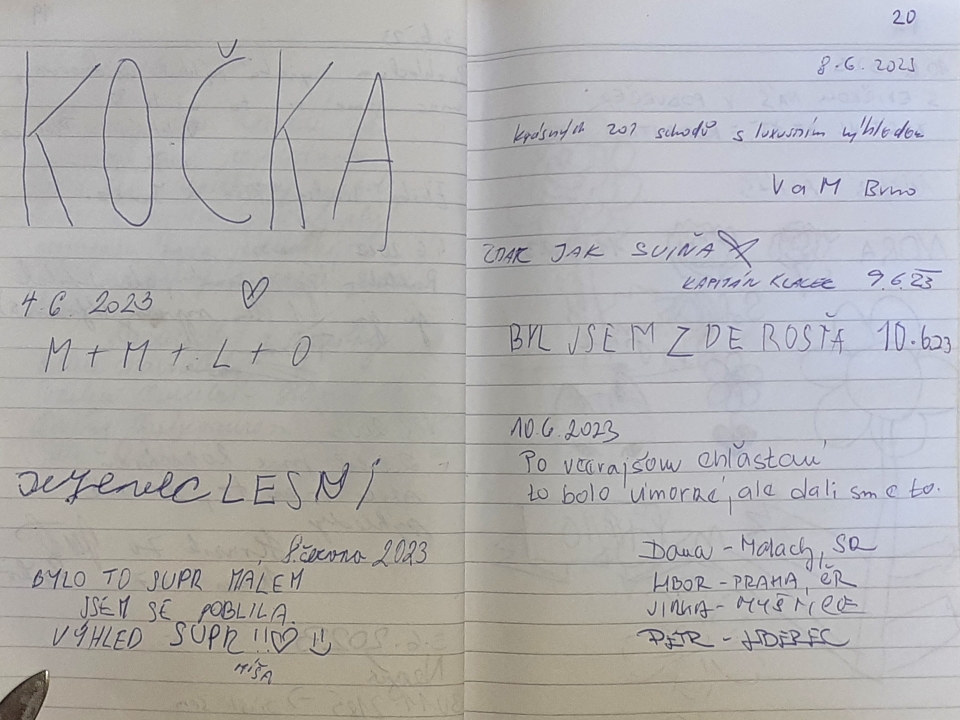 KOČKA
4.6. 2023 ♡
M + M + L + O
LESNÍ
8. června 2023
BYLO TO SUPR MÁLEM
JSEM SE POBLILA.
VÝHLED SUPR !!♡ :)
MÍŠA
20
8.6. 2023
krásných 201 schodů s luxusním výhledem
V a M Brno
JAK SVIŇA
KAPITÁN 9.6.23
BYL JSEM ZDE ROSŤA 10.6.23
10.6.2023
Po včerajšom chľastaní
to bolo úmorné, ale dali sme to.
Dana - Malacky, SR
LIBOR - PRAHA, ČR
PETR - LIBEREC